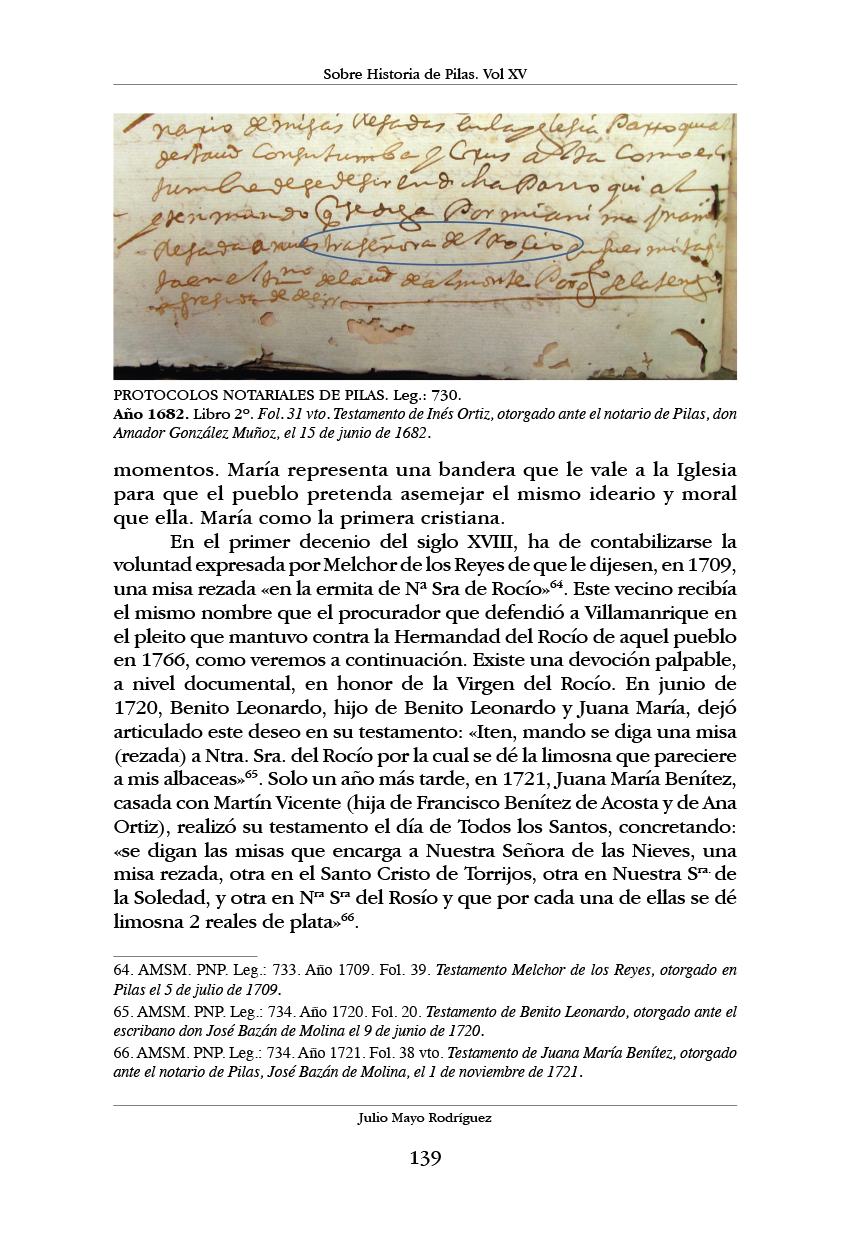 Sobre Historia de Pilas. Vol XV
nario de misas Resadas en la yglesia Parroquial
desta ud Con su tumba y Crus alta Como es
tumbre de se desir en dicha Parroquial
yten mando que se diga Por mi anima
Resada a nuestra señora del Rosio en su ermita
de la ud de almonte Por
PROTOCOLOS NOTARIALES DE PILAS. Leg.: 730.
Año 1682. Libro 2º. Fol. 31 vto. Testamento de Inés Ortiz, otorgado ante el notario de Pilas, don
Amador González Muñoz, el 15 de junio de 1682.
momentos. María representa una bandera que le vale a la Iglesia
para que el pueblo pretenda asemejar el mismo ideario y moral
que ella. María como la primera cristiana.
En el primer decenio del siglo XVIII, ha de contabilizarse la
voluntad expresada por Melchor de los Reyes de que le dijesen, en 1709,
una misa rezada «en la ermita de Nª Sra de Rocío»⁶⁴. Este vecino recibía
el mismo nombre que el procurador que defendió a Villamanrique en
el pleito que mantuvo contra la Hermandad del Rocío de aquel pueblo
en 1766, como veremos a continuación. Existe una devoción palpable,
a nivel documental, en honor de la Virgen del Rocío. En junio de
1720, Benito Leonardo, hijo de Benito Leonardo y Juana María, dejó
articulado este deseo en su testamento: «Iten, mando se diga una misa
(rezada) a Ntra. Sra. del Rocío por la cual se dé la limosna que pareciere
a mis albaceas»⁶⁵. Solo un año más tarde, en 1721, Juana María Benítez,
casada con Martín Vicente (hija de Francisco Benítez de Acosta y de Ana
Ortiz), realizó su testamento el día de Todos los Santos, concretando:
«se digan las misas que encarga a Nuestra Señora de las Nieves, una
misa rezada, otra en el Santo Cristo de Torrijos, otra en Nuestra Sʳᵃ· de
la Soledad, y otra en Nʳᵃ Sʳᵃ del Rosío y que por cada una de ellas se dé
limosna 2 reales de plata»⁶⁶.
64. AMSM. PNP. Leg.: 733. Año 1709. Fol. 39. Testamento Melchor de los Reyes, otorgado en
Pilas el 5 de julio de 1709.
65. AMSM. PNP. Leg.: 734. Año 1720. Fol. 20. Testamento de Benito Leonardo, otorgado ante el
escribano don José Bazán de Molina el 9 de junio de 1720.
66. AMSM. PNP. Leg.: 734. Año 1721. Fol. 38 vto. Testamento de Juana María Benítez, otorgado
ante el notario de Pilas, José Bazán de Molina, el 1 de noviembre de 1721.
Julio Mayo Rodríguez
139